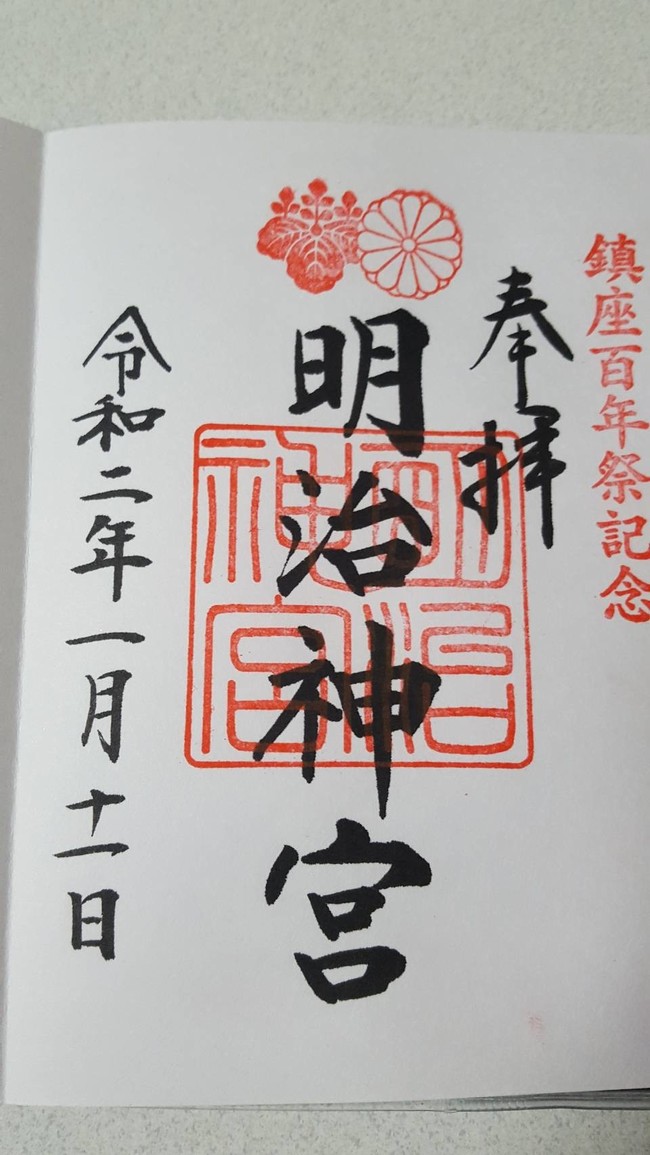 鎮座百年祭記念
奉拝
明治神宮
明治神宮
令和二年一月十一日